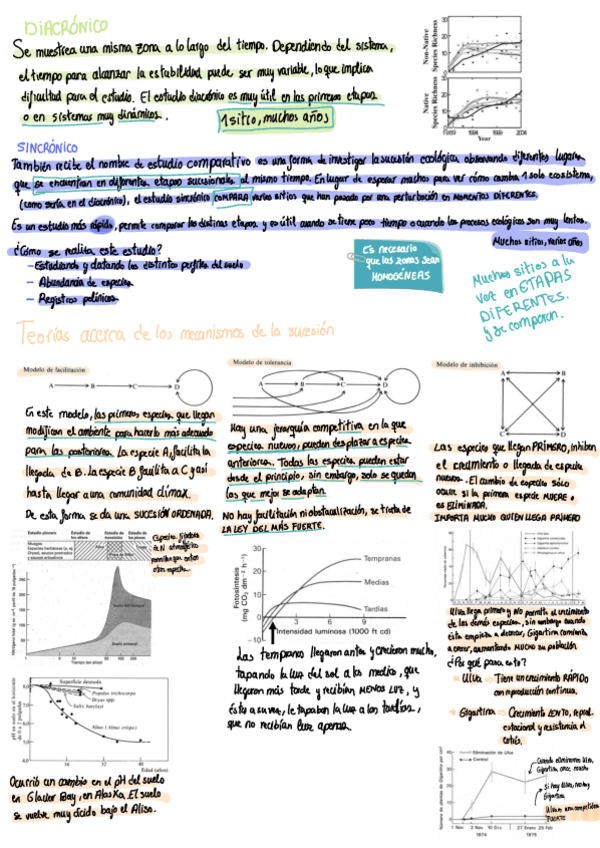 DIACRÓNICO
Se muestrea una misma zona a lo largo del tiempo. Dependiendo del sistema,
el tiempo para alcanzar la estabilidad puede ser muy variable, lo que implica
dificultad para el estudio. El estudio diacrónico es muy útil en las primeras etapas
o en sistemas muy dinámicos.
1 sitio, muchos años
Non-Native
Species Richness
Native
Species Richness
Year
SINCRÓNICO
También recibe el nombre de estudio comparativo es una forma de investigar la sucesión ecológica observando diferentes lugares
que se encuentran en diferentes etapas sucesionales al mismo tiempo. En lugar de esperar muchos para ver cómo cambia 1 solo ecosistema,
(como sería en el diacrónico), el estudio sincrónico COMPARA varios sitios que han pasado por una perturbación en MOMENTOS DIFERENTES.
Es un estudio más rápido, permite comparar las distintas etapas y es útil cuando se tiene poco tiempo o cuando los procesos ecológicos son muy lentos.
Muchos sitios, varios años
¿Cómo se realiza este estudio?
- Estudiando y datando los distintos perfiles del suelo
- Abundancia de especies
- Registros polínicos
Es necesario
que las zonas sean
HOMOGÉNEAS
Muchos sitios a la
vez en ETAPAS
DIFERENTES.
y se comparan.
Teorías acerca de los mecanismos de la sucesión
Modelo de facilitación
A B C D
En este modelo, las primeras especies que llegan
modifican el ambiente para hacerlo más adecuado
para las posteriores. La especie A facilita la
llegada de B. La especie B facilita a C y así
hasta llegar a una comunidad clímax.
De esta forma se da una SUCESIÓN ORDENADA.
Estadio pionero
Tiempo (en años)
Superficie desnuda
Populus trichocarpa
Dryas spp.
Salix barclayi
Aliso (Alnus crispa)
8,0
7,0
6,0
5,0
16 32 48
Edad (años)
Ocurrió un cambio en el pH del suelo
en Glacier Bay, en Alaska. El suelo
se vuelve muy ácido bajo el Aliso.
Modelo de tolerancia
A B C D
Hay una jerarquía competitiva en la que
especies nuevas, pueden desplazar a especies
anteriores. Todas las especies pueden estar
desde el principio, sin embargo, solo se quedan
las que mejor se adaptan.
No hay facilitación ni obstaculización, se trata de
LA LEY DEL MÁS FUERTE.
Fotosíntesis
(mg CO₂ dm⁻² hr⁻¹)
30
20
10
0
-10
Tempranas
Medias
Tardías
3 6 9
Intensidad luminosa (1000 ft cd)
Las tempranas llegaron antes y crecieron mucho,
tapando la luz del sol a las medias, que
llegaron más tarde y recibían MENOS LUZ, y
esta a su vez, le tapaban la luz a las tardías,
que no recibían luz apenas.
Modelo de inhibición
A B
C D
Las especies que llegan PRIMERO, inhiben
el crecimiento o llegada de especies
nuevas. El cambio de especies sólo
ocurre si la primera especie MUERE o
es ELIMINADA.
IMPORTA MUCHO QUIEN LLEGA PRIMERO
Ulva llega primero y NO permite el crecimiento
de las demás especies, sin embargo cuando
esta empieza a decrecer, Gigartina comienza
a crecer, aumentando MUCHO su población
¿Por qué pasa esto?
- Ulva → Tiene un crecimiento RÁPIDO
con reproducción continua.
- Gigartina → Crecimiento LENTO, reprod.
estacional y resistencia al
estrés.
Número de plantas de Gigartina por cm²
Eliminación de Ulva
Control
Cuando eliminamos Ulva,
Gigartina crece mucho
Si hay Ulva, no hay
Gigartina
FUERTE
1 Nov 2 Nov 10 Dic 27 Enero 25 Feb
1974 1975